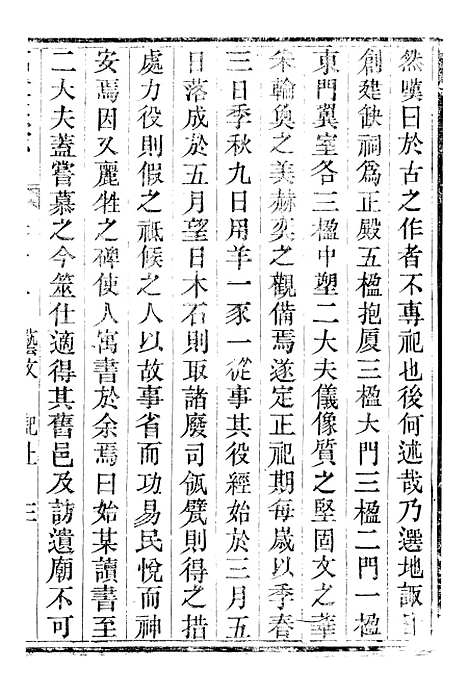 然嘆曰於古之作者不專祀也後何述哉乃選地諏日
創建缺祠為正殿五楹抱厦三楹大門三楹二門一楹
東門翼室各三楹中塑二大夫儀像質之堅固文之華
采輪奐之美赫奕之觀備焉遂定正祀期每歲以季春
三日季秋九日用羊一豕一從事其役經始於三月五
日落成於五月望日木石則取諸廢司瓴甓則得之措
處力役則假之祗候之人以故事省而功易民悅而神
安焉因又麗牲之碑使人寓書於余焉曰始某讀書至
二大夫蓋嘗慕之今筮仕適得其舊邑及訪遺廟不可
藝文 記上 三